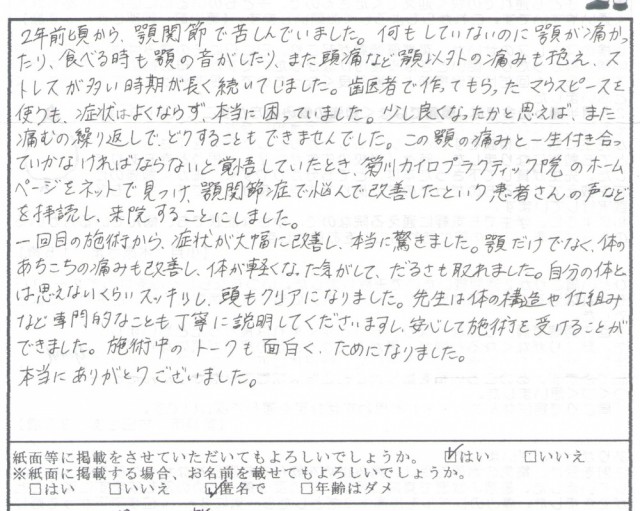 2年前頃から、顎関節で苦しんでいました。何もしていないのに顎が痛かっ
たり、食べる時も顎の音がしたり、また頭痛など顎以外の痛みも抱え、ス
トレスが多い時期が長く続いてしまいました。歯医者で作ってもらったマウスピースを
使うも、症状はよくならず、本当に困っていました。少し良くなったかと思えば、また
痛むの繰り返しで、どうすることもできませんでした。この顎の痛みと一生付き合っ
ていかなければならないと覚悟していたとき、菊川カイロプラクティック院のホーム
ページをネットで見つけ、顎関節症で悩んで改善したという患者さんの声など
を拝読し、来院することにしました。
一回目の施術から、症状が大幅に改善し、本当に驚きました。顎だけでなく、体の
あちこちの痛みも改善し、体が軽くなった気がして、だるさも取れました。自分の体と
は思えないくらいスッキリし、頭もクリアになりました。先生は体の構造や仕組み
など専門的なことも丁寧に説明してくださいますし、安心して施術を受けることが
できました。施術中のトークも面白く、ためになりました。
本当にありがとうございました。
紙面等に掲載をさせていただいてもよろしいでしょうか。 ☑はい □いいえ
※紙面に掲載する場合、お名前を載せてもよろしいでしょうか。
□はい □いいえ ☑匿名で □年齢はダメ